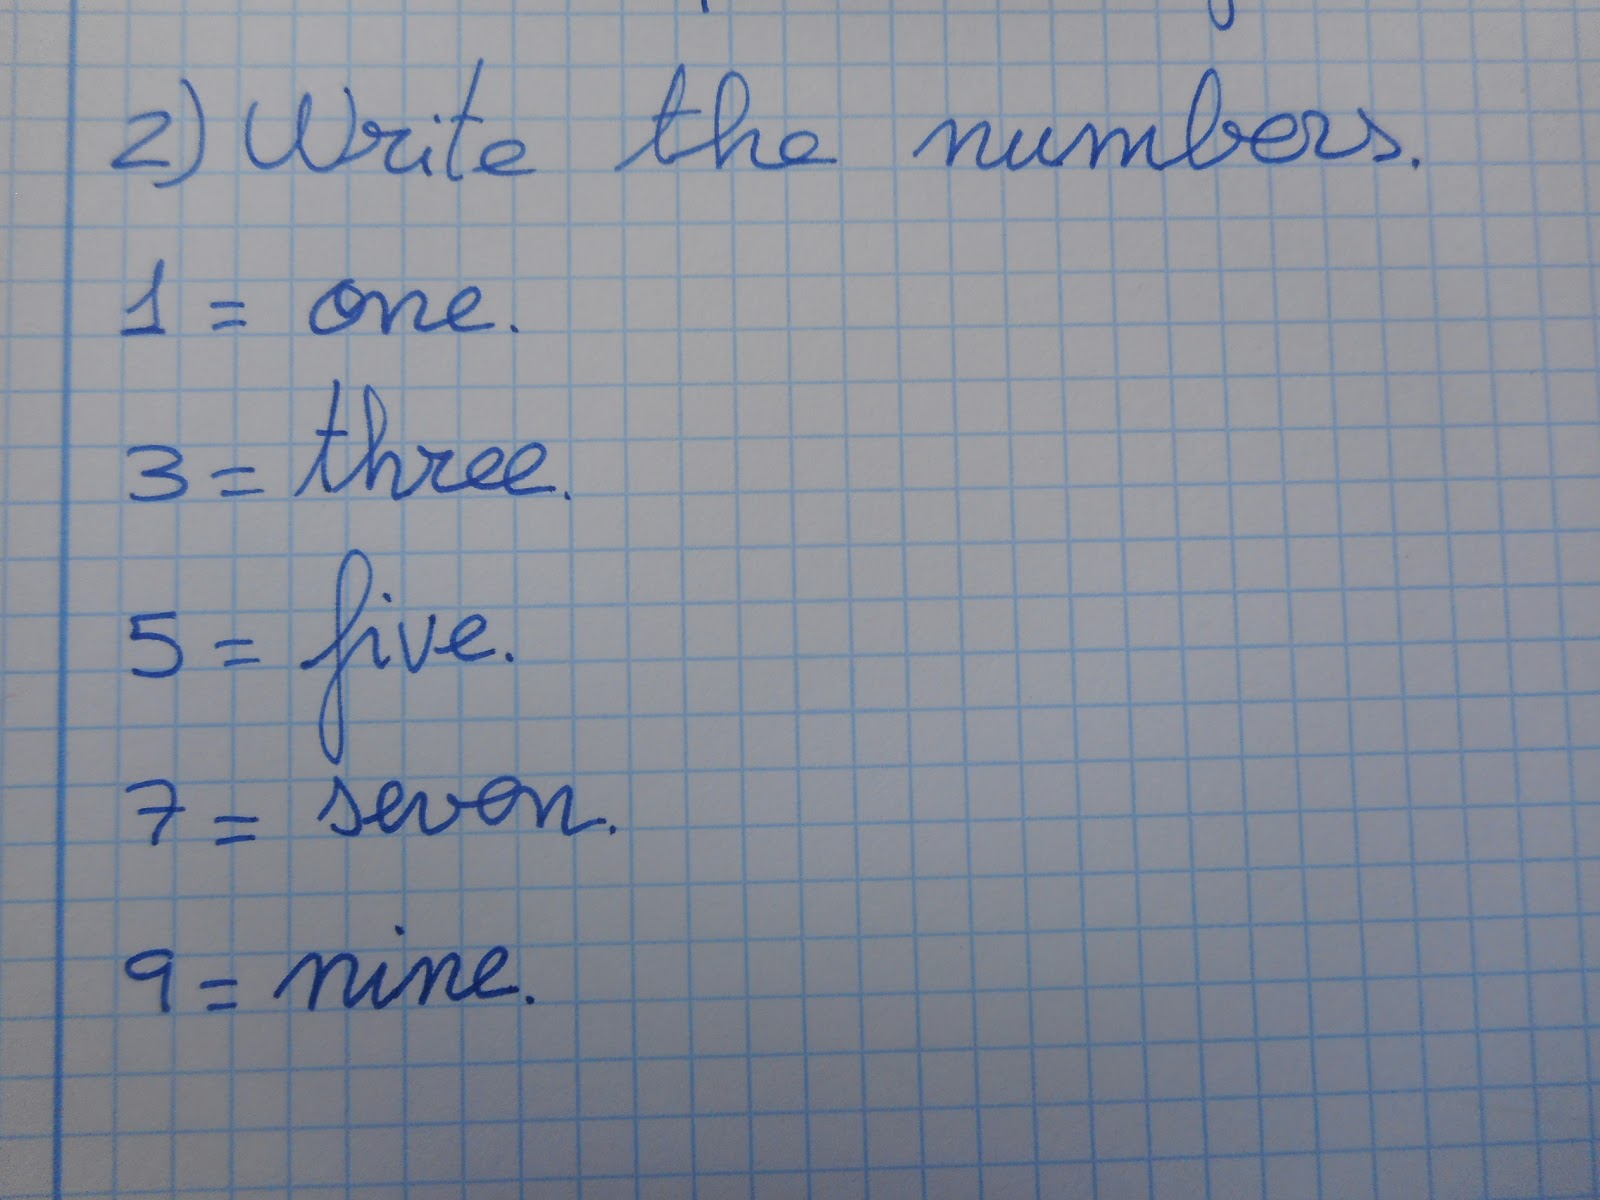 2) Write the numbers.
1 = one.
3 = three.
5 = five.
7 = seven.
9 = nine.